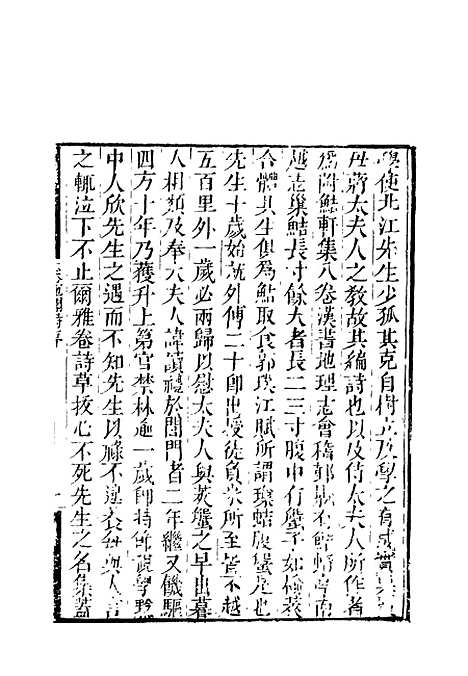 學使北江先生少孤其克自樹立及學之有成實其
母蔣太夫人之教故其編詩也以及侍太夫人所作者
爲附鮚軒集八卷漢書地理志會稽郡鄞有鮚埼亭南
越志巢鮚長寸餘大者長二三寸腹中有蟹子如榆莢
合體共生俱爲鮚取食郭璞江賦所謂璅蛣腹蟹是也
先生十歲始就外傅二十即出授徒負米所至皆不越
五百里外一歲必兩歸以慰太夫人與莢蟹之早出暮
人相類及奉太夫人諱讀禮於閉門者二年繼又饑驅
四方十年乃獲升上第官禁林逾一歲即持節視學黔
中人欣先生之遇而不知先生以祿不逮養每與人言
之輒泣下不止爾雅卷詩草拔心不死先生之名集蓋